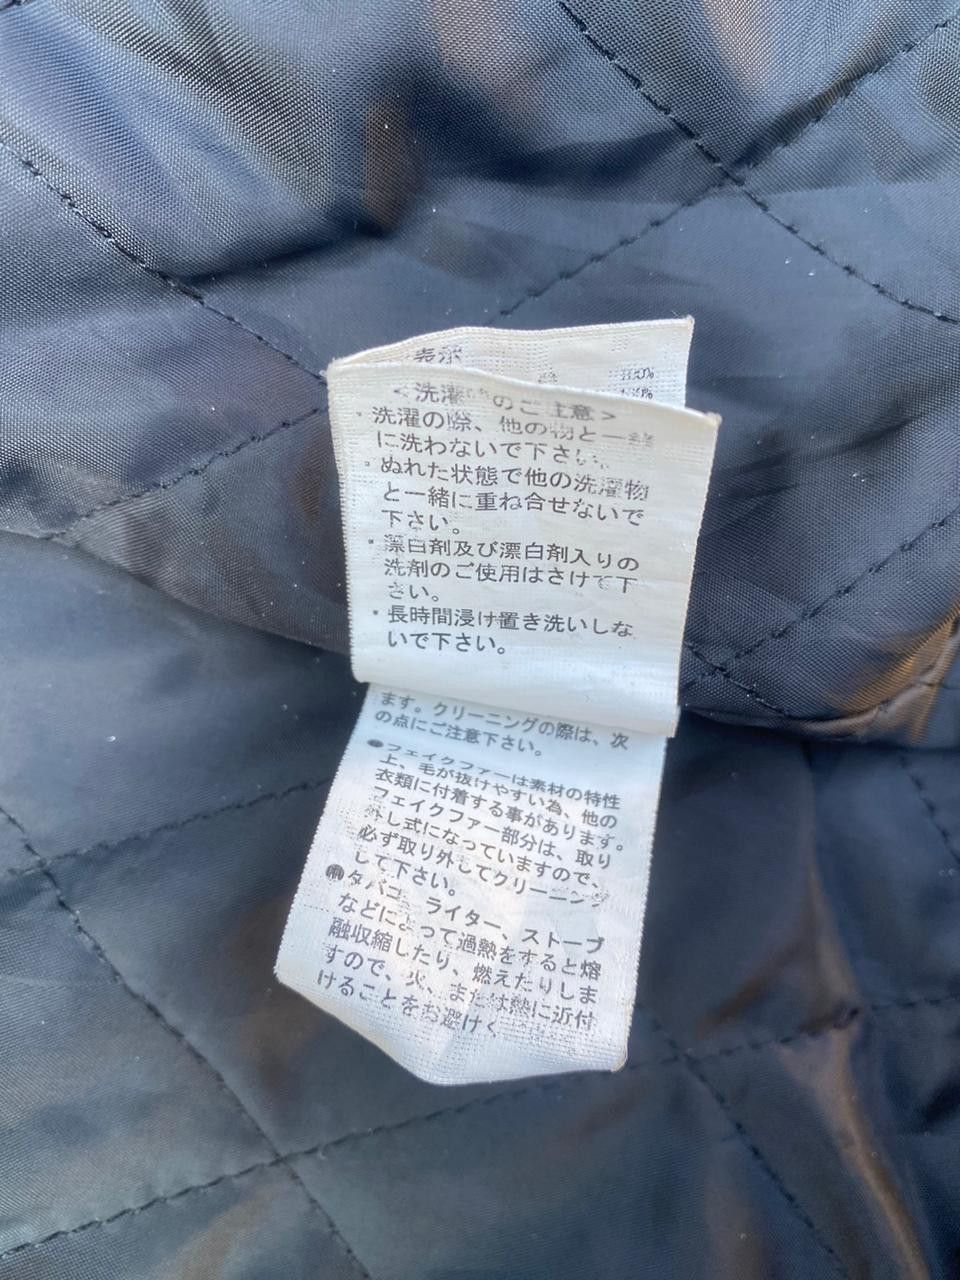 表示
100%
100%
<洗濯 のご注意>
・洗濯の際、他の物と一緒
に洗わないで下さい。
・ぬれた状態で他の洗濯物
と一緒に重ね合せないで
下さい。
・漂白剤及び漂白剤入りの
洗剤のご使用はさけて下
さい。
・長時間浸け置き洗いしな
いで下さい。
ます。クリーニングの際は、次
の点にご注意下さい。
●フェイクファーは素材の特性
上、毛が抜けやすい為、他の
衣類に付着する事があります。
フェイクファー部分は、取り
外し式になっていますので、
必ず取り外してクリーニング
して下さい。
●タバコ、ライター、ストーブ
などによって過熱をすると熔
融収縮したり、燃えたりしま
すので、火、または熱に近付
けることをお避けく